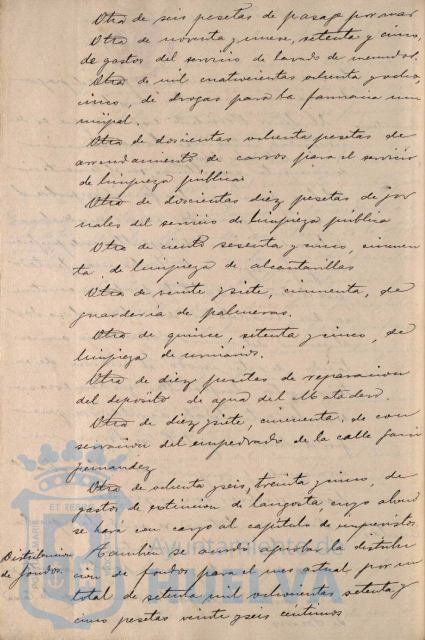 Otra de seis pesetas de pasaje por mar
Otra de noventa y nueve, setenta y cinco,
de gastos del servicio de lavado de menudos.
Otra de mil cuatrocientas ochenta y ocho,
cinco, de drogas para la farmacia mu-
nicipal.
Otra de doscientas ochenta pesetas de
arrendamiento de carros para el servicio
de limpieza pública
Otra de doscientas diez pesetas de jor-
nales del servicio de limpieza pública
Otra de ciento sesenta y cinco, cincuen-
ta, de limpieza de alcantarillas
Otra de veinte y siete, cincuenta, de
guardería de palmeras.
Otra de quince, setenta y cinco, de
limpieza de urinarios.
Otra de diez pesetas de reparacion
del depósito de agua del Matadero.
Otra de diez y siete, cincuenta, de con-
servacion del empedrado de la calle
Fernandez
Otra de ochenta y seis, treinta y cinco, de
gastos de extincion de langosta cuyo abono
se hará con cargo al capítulo de imprevistos
Distribucion
de fondos.
Tambien se acordó aprobar la distribu-
cion de fondos para el mes actual por un
total de setenta mil ochocientas setenta y
cinco pesetas veinte y seis centimos
Ayuntamiento de
HUELVA